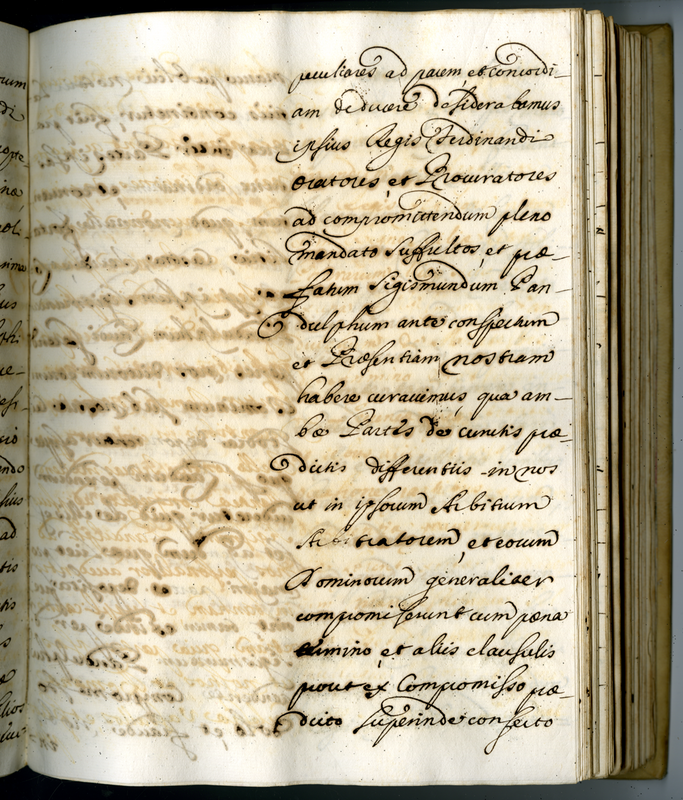 peculiares ad pacem, et concordi-
am deducere desiderabamus
ipsius Regis Ferdinandi
Oratores, et Procuratores
ad compromittendum pleno
mandato suffultos, et præ-
fatum Sigismundum Pan-
dulphum ante conspectum
et Præsentiam nostram
habere curavimus, qua am-
bæ Partes de cunctis præ-
dictis differentiis in nos
ut in ipsorum Arbitrum
Arbitratorem, et eorum
Dominorum generaliter
compromiserunt cum pæna
et aliis clausulis
prout ex Compromisso præ-
dicto superinde confecto